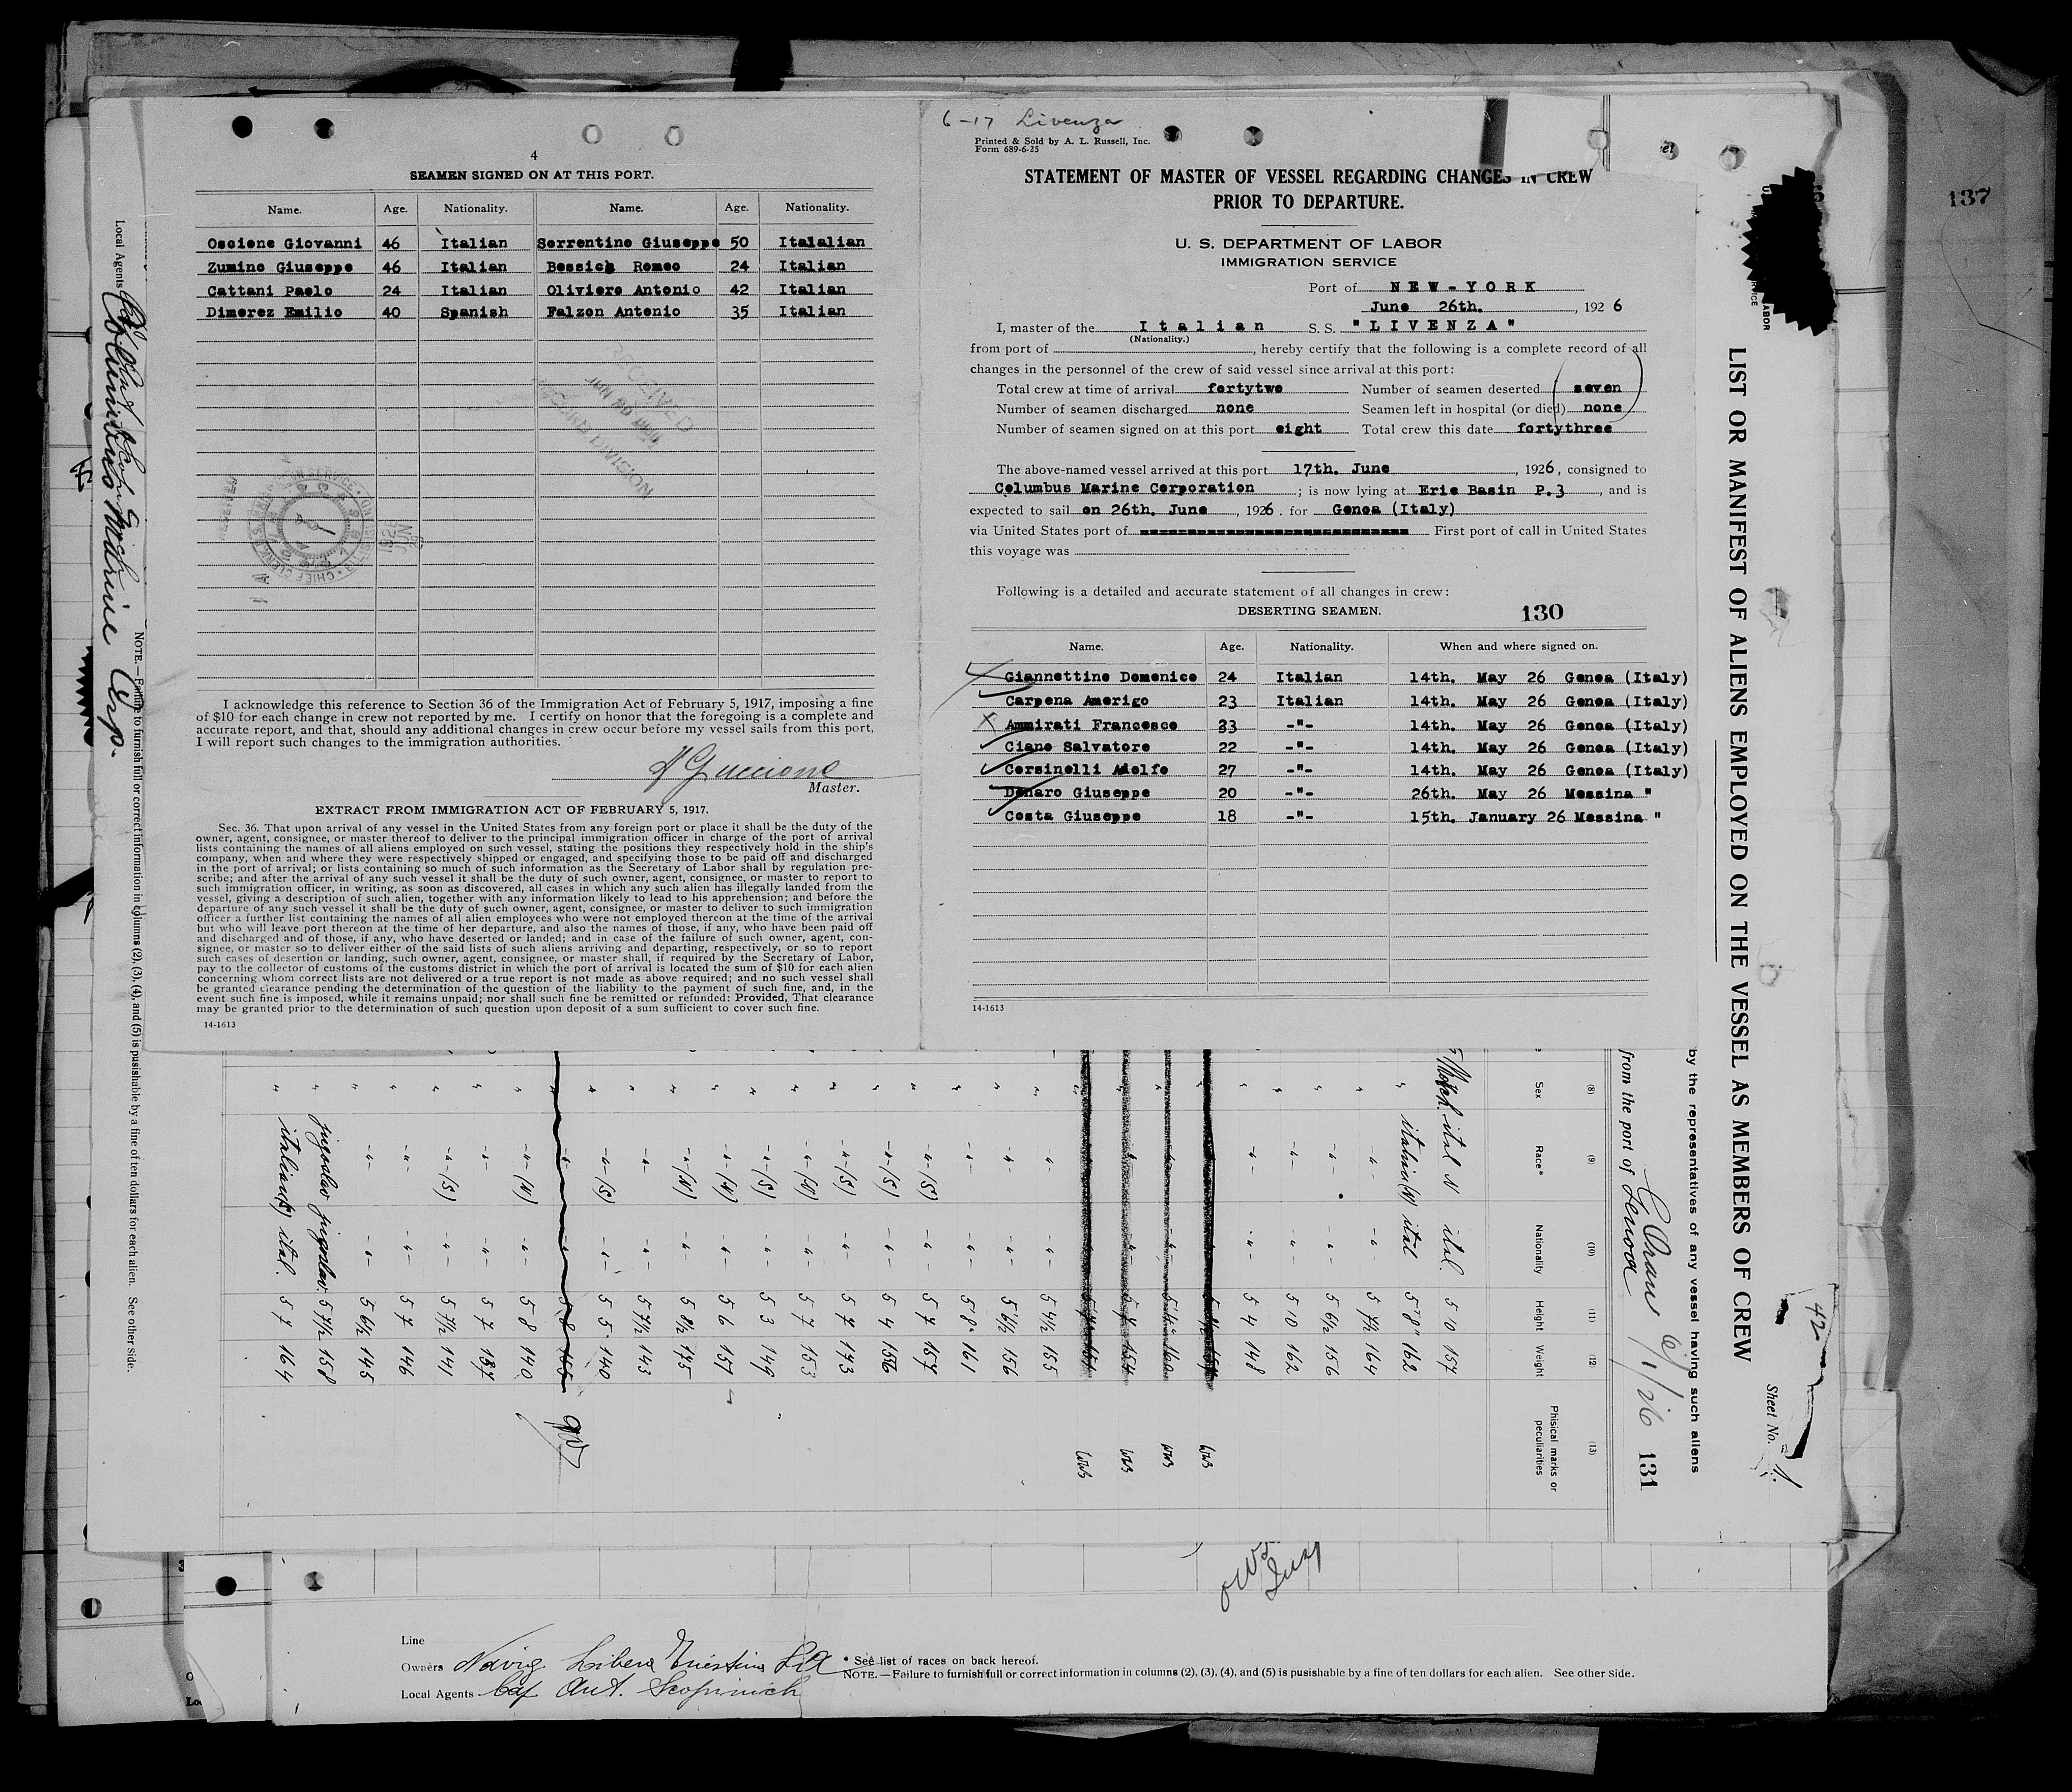 137
4
SEAMEN SIGNED ON AT THIS PORT.
Name. Age. Nationality. Name. Age. Nationality.
Osciene Giovanni 46 Italian Sorrentino Giuseppe 50 Italalian
Zumino Giuseppe 46 Italian Bossich Romeo 24 Italian
Cattani Paolo 24 Italian Oliviero Antonio 42 Italian
Dimerez Emilio 40 Spanish Falzon Antonio 35 Italian
RECEIVED
JUN 30
RECORD DIVISION
I acknowledge this reference to Section 36 of the Immigration Act of February 5, 1917, imposing a fine
of $10 for each change in crew not reported by me. I certify on honor that the foregoing is a complete and
accurate report, and that, should any additional changes in crew occur before my vessel sails from this port,
I will report such changes to the immigration authorities.
Guccione
Master.
EXTRACT FROM IMMIGRATION ACT OF FEBRUARY 5, 1917.
Sec. 36. That upon arrival of any vessel in the United States from any foreign port or place it shall be the duty of the
owner, agent, consignee, or master thereof to deliver to the principal immigration officer in charge of the port of arrival
lists containing the names of all aliens employed on such vessel, stating the positions they respectively hold in the ship's
company, when and where they were respectively shipped or engaged, and specifying those to be paid off and discharged
in the port of arrival; or lists containing so much of such information as the Secretary of Labor shall by regulation pre-
scribe; and after the arrival of any such vessel it shall be the duty of such owner, agent, consignee, or master to report to
such immigration officer, in writing, as soon as discovered, all cases in which any such alien has illegally landed from the
vessel, giving a description of such alien, together with any information likely to lead to his apprehension; and before the
departure of any such vessel it shall be the duty of such owner, agent, consignee, or master to deliver to such immigration
officer a further list containing the names of all alien employees who were not employed thereon at the time of the arrival
but who will leave port thereon at the time of her departure, and also the names of those, if any, who have been paid off
and discharged and of those, if any, who have deserted or landed; and in case of the failure of such owner, agent, con-
signee, or master so to deliver either of the said lists of such aliens arriving and departing, respectively, or so to report
such cases of desertion or landing, such owner, agent, consignee, or master shall, if required by the Secretary of Labor,
pay to the collector of customs of the customs district in which the port of arrival is located the sum of $10 for each alien
concerning whom correct lists are not delivered or a true report is not made as above required; and no such vessel shall
be granted clearance pending the determination of the question of the liability to the payment of such fine, and, in the
event such fine is imposed, while it remains unpaid; nor shall such fine be remitted or refunded: Provided, That clearance
may be granted prior to the determination of such question upon deposit of a sum sufficient to cover such fine.
14-1613
6-17 Livenza
Printed & Sold by A. L. Russell, Inc.
Form 689-6-25
STATEMENT OF MASTER OF VESSEL REGARDING CHANGES IN CREW
PRIOR TO DEPARTURE.
U. S. DEPARTMENT OF LABOR
IMMIGRATION SERVICE
Port of NEW-YORK
June 26th. , 192 6
I, master of the Italian S. S. "LIVENZA"
(Nationality.)
from port of , hereby certify that the following is a complete record of all
changes in the personnel of the crew of said vessel since arrival at this port:
Total crew at time of arrival fortytwo Number of seamen deserted seven
Number of seamen discharged none Seamen left in hospital (or died) none
Number of seamen signed on at this port eight Total crew this date fortythree
The above-named vessel arrived at this port 17th. June , 1926, consigned to
Columbus Marine Corporation ; is now lying at Erie Basin P.3 , and is
expected to sail on 26th. June , 1926. for Genoa (Italy)
via United States port of First port of call in United States
this voyage was
Following is a detailed and accurate statement of all changes in crew:
DESERTING SEAMEN. 130
Name. Age. Nationality. When and where signed on.
Giannettino Domenico 24 Italian 14th. May 26 Genoa (Italy)
Carpena Amerigo 23 Italian 14th. May 26 Genoa (Italy)
Ammirati Francesco 33 -"- 14th. May 26 Genoa (Italy)
Ciano Salvatore 22 -"- 14th. May 26 Genoa (Italy)
Corsinelli Adolfo 27 -"- 14th. May 26 Genoa (Italy)
Denaro Giuseppe 20 -"- 26th. May 26 Messina "
Costa Giuseppe 18 -"- 15th. January 26 Messina "
14-1613
LIST OR MANIFEST OF ALIENS EMPLOYED ON THE VESSEL AS MEMBERS OF CREW
42
Sheet No. 1
by the representatives of any vessel having such aliens
from the port of Genova 131
(8) (9) (10) (11) (12) (13)
Sex Race* Nationality Height Weight Phisical marks or peculiarities
ital N ital. 5 10 157
italiano (N) ital 5 8" 162
-"- -"- 5 7½ 164
-"- -"- 5 6½ 156
-"- -"- 5 10 162
-"- -"- 5 4 148
-"- -"- 5 4½ 155
-"- -"- 5 6½ 156
-"- -"- 5 8 161
-"-(S) -"- 5 7 157
-"-(S) -"- 5 4 156
-"-(S) -"- 5 7 143
-"-(N) -"- 5 7 153
-"-(S) -"- 5 3 149
-"-(N) -"- 5 6 157
-"-(N) -"- 5 8½ 145
-"- -"- 5 7½ 143
-"-(S) -"- 5 5 140
-"-(N) -"- 5 8 140
-"- -"- 5 7 137
-"-(S) -"- 5 7½ 141
-"- -"- 5 7 146
-"- -"- 5 6½ 145
jugoslav jugoslav. 5 7½ 158
italiano(S) ital. 5 7 164
Local Agents Cap. Ant. Scopinich
Columbus Marine Corp.
NOTE.—Failure to furnish full or correct information in columns (2), (3), (4), and (5) is pusishable by a fine of ten dollars for each alien. See other side.
Line
Owners Navig. Libera Triestina Ltd * See list of races on back hereof.
NOTE.—Failure to furnish full or correct information in columns (2), (3), (4), and (5) is pusishable by a fine of ten dollars for each alien. See other side.
Local Agents Cap Ant. Scopinich